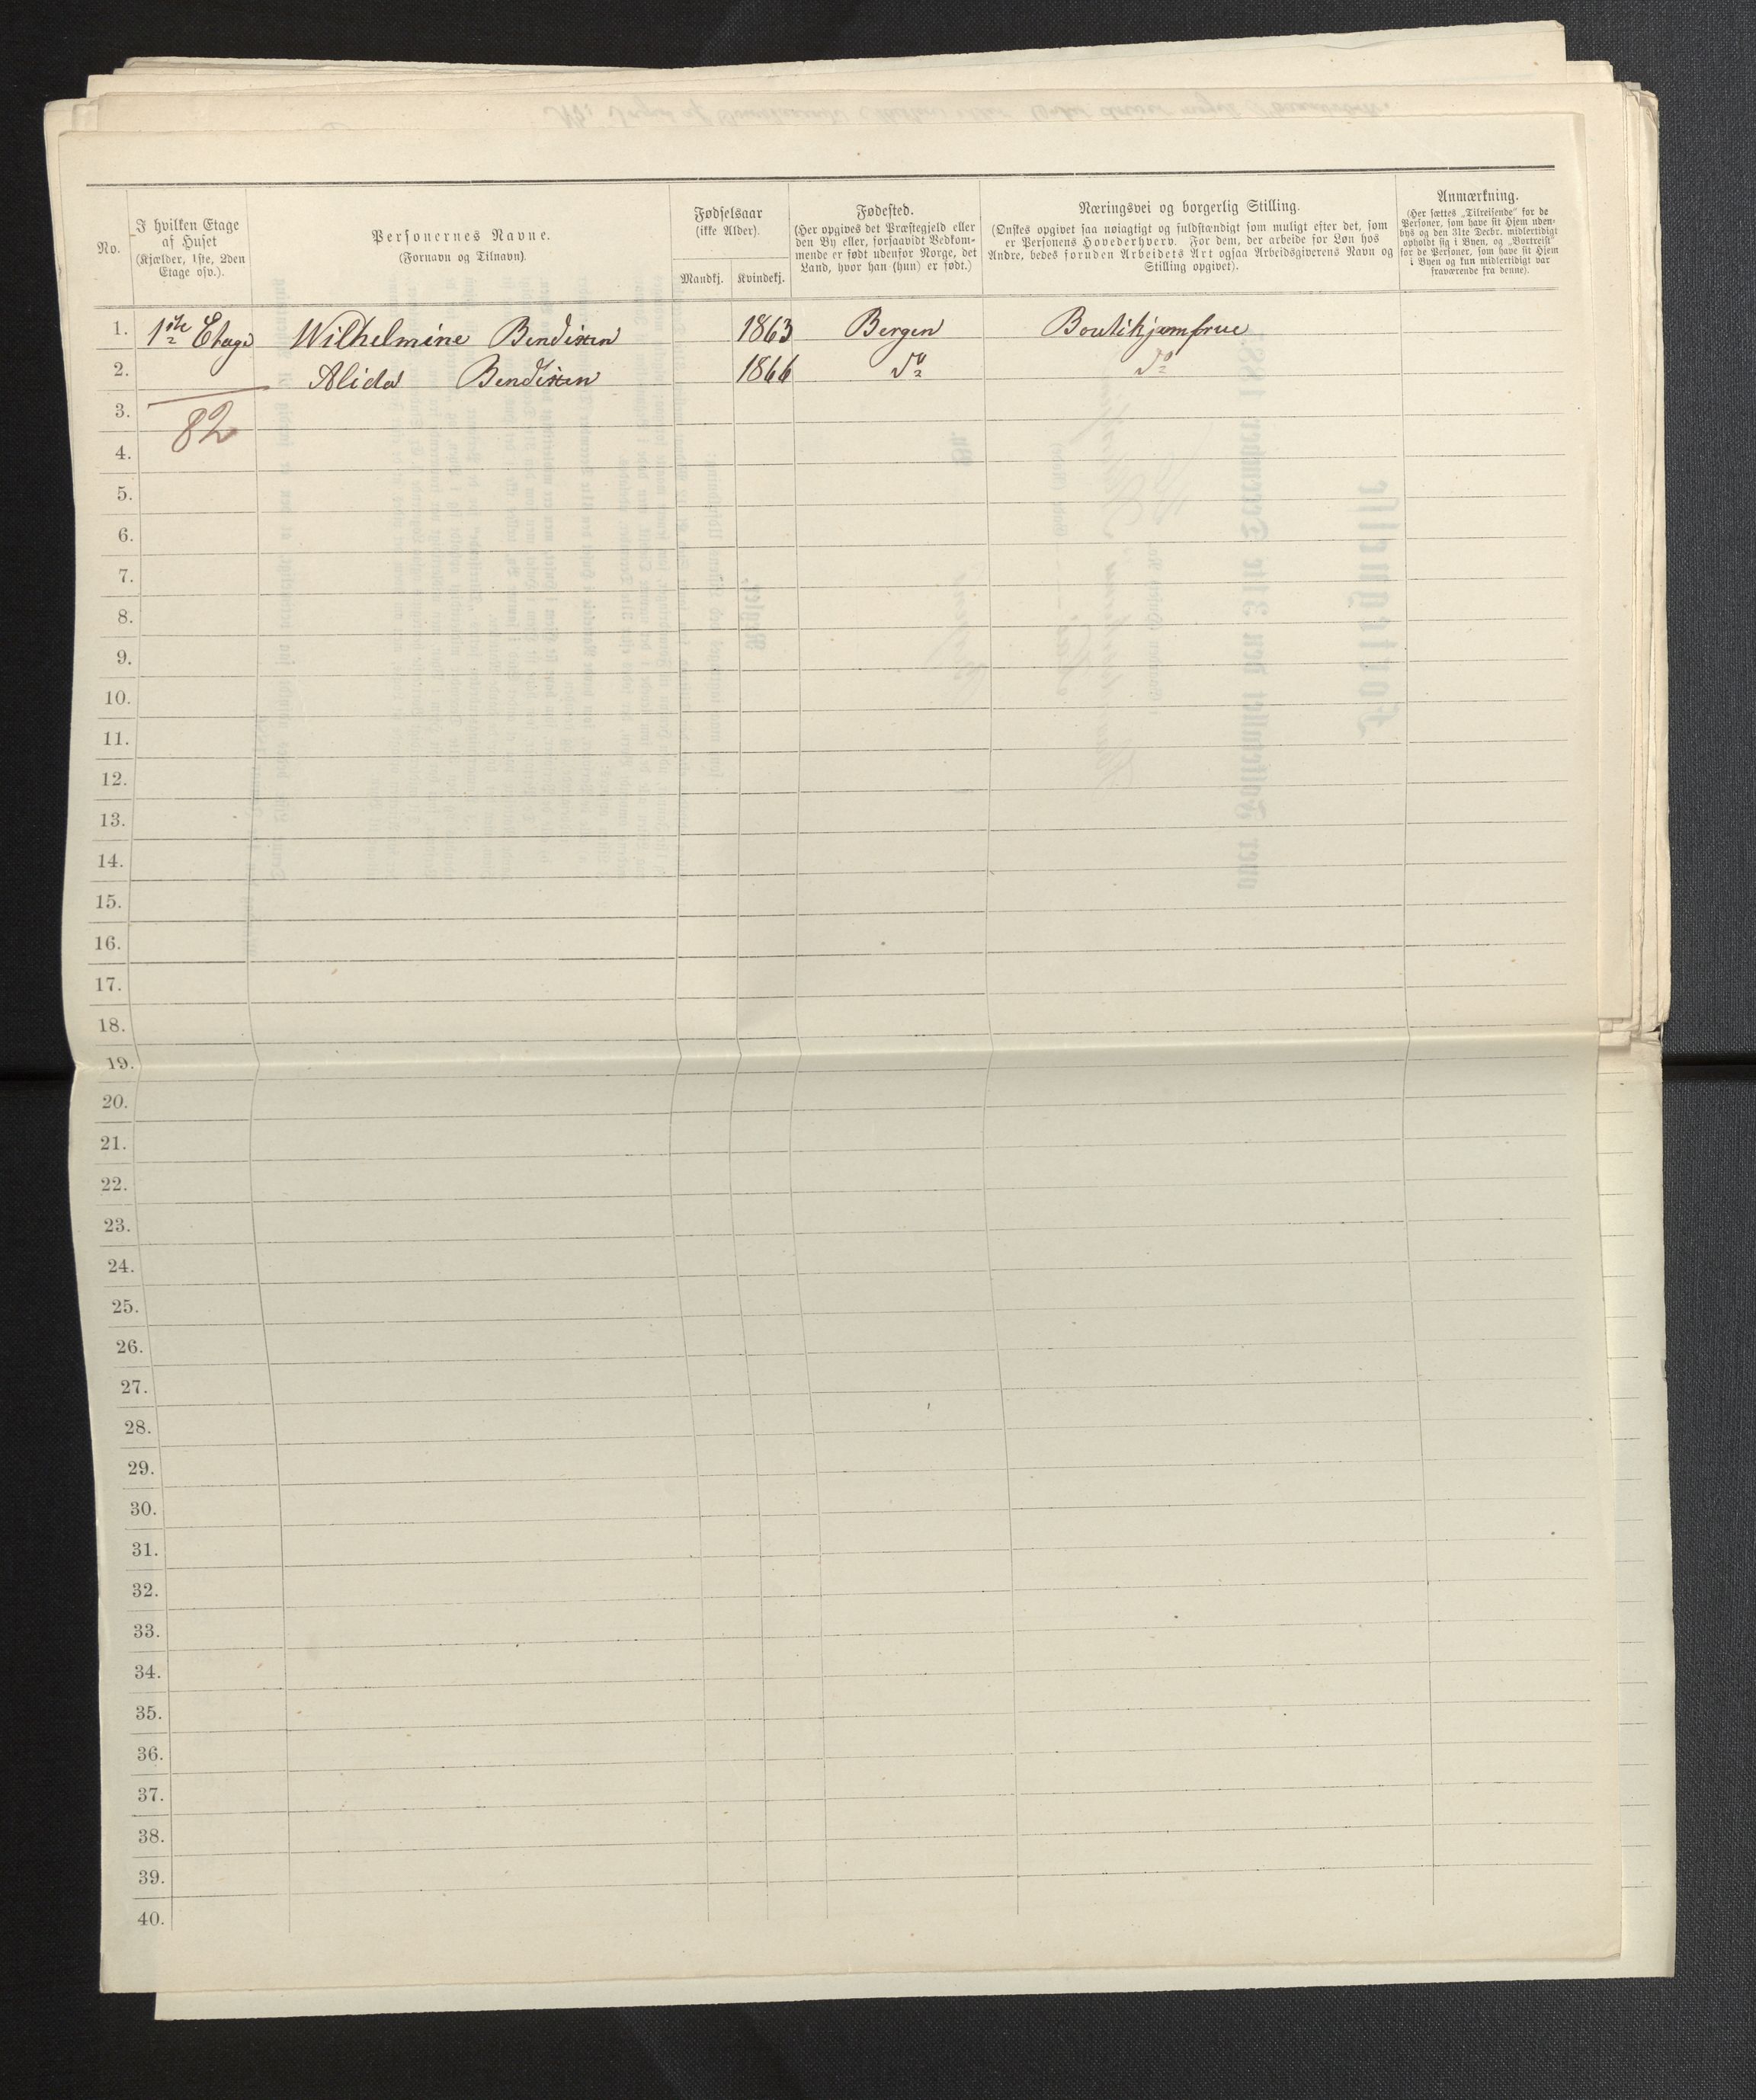 No.
I hvilken Etage
af Huset
(Kjælder, 1ste, 2den
Etage osv.).
Personernes Navne.
(Fornavn og Tilnavn).
Fødselsaar
(ikke Alder).
Mandkj.
Kvindekj.
Fødested.
(Her opgives det Præstegjeld eller
den By eller, forsaavidt Vedkom-
mende er født udenfor Norge, det
Land, hvor han (hun) er født.)
Næringsvei og borgerlig Stilling.
(Ønskes opgivet saa nøiagtigt og fuldstændigt som muligt efter det, som
er Personens Hovederhverv. For dem, der arbeide for Løn hos
Andre, bedes foruden Arbeidets Art ogsaa Arbeidsgiverens Navn og
Stilling opgivet).
Anmærkning.
(Her sættes „Tilreisende" for de
Personer, som have sit Hjem uden-
bys og den 31te Decbr. midlertidigt
opholdt sig i Byen, og „Bortreist"
for de Personer, som have sit Hjem
i Byen og kun midlertidigt var
fraværende fra denne).
1. 1ste Etage Wilhelmine Bendixen 1863 Bergen Boutikjomfrue
2. Alida Bendixen 1866 do do
3.
82
4.
5.
6.
7.
8.
9.
10.
11.
12.
13.
14.
15.
16.
17.
18.
19.
20.
21.
22.
23.
24.
25.
26.
27.
28.
29.
30.
31.
32.
33.
34.
35.
36.
37.
38.
39.
40.